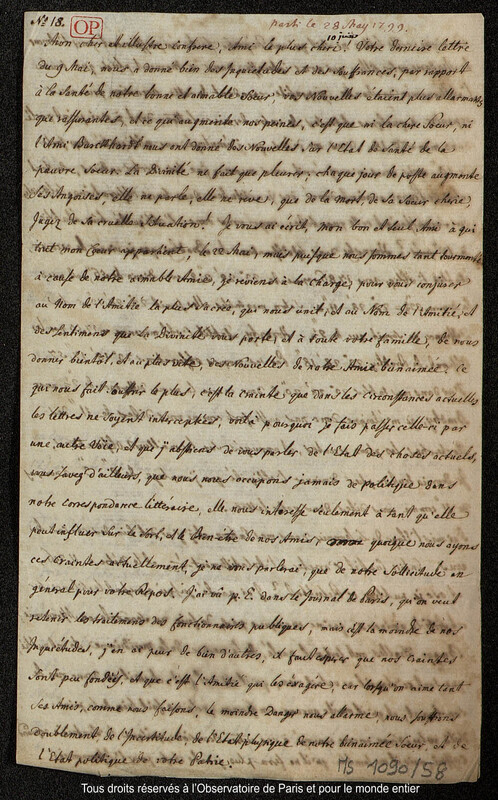 No 18. OP parti le 28 May 1799.
10 juin
Mon cher et illustre confrere, Ami le plus cheri! Votre derniere lettre
du 9 Mai, nous a donné bien des Inquietudes et des souffrances, par rapport
à la santé de notre bonne et aimable Soeur; vos Nouvelles étaient plus allarmantes
que rassurantes, et ce qui augmenta nos peines, c'est que ni la chere Soeur, ni
l'Ami Burckhardt nous ont donné des Nouvelles sur l'Etat de Santé de la
pauvre Soeur. La Divinité ne fait que pleurer, chaque jour de poste augmente
ses Angoises, elle ne parle, elle ne reve, que de la mort de sa Soeur cherie,
Jugez de sa cruelle Situation! Je vous ai écrit, mon bon et seul Ami à qui
tout mon coeur appartient, le 22 Mai, mais puisque nous sommes tant tourmentés
à cause de notre aimable Amie, je reviens à la charge, pour vous conjurer
au Nom de l'Amitié la plus sacrée, qui nous unit, et au Nom de l'Amitié, et
des Sentimens que la Divinité vous porte, et à toute votre famille, de nous
donner bientôt, et au plus vite, des Nouvelles de notre Amie bienaimée; ce
qui nous fait souffrir le plus, c'est la crainte que dans les circonstances actuelles
les lettres ne soyent interceptées, voilà pourquoi je fais passer celle-ci par
une autre Voie, et que j'abstiens de vous parler de l'Etat des choses actuels,
vous savez d'ailleurs, que nous nous occupons jamais de politique dans
notre correspondance littéraire, elle nous interesse seulement à tant qu'elle
peut influer sur le sort, et le bien-être de nos Amis, quoique nous ayons
ces craintes actuellement, je ne vous parlerai, que de notre Sollicitude en
général pour votre Repos. J'ai vû p. E. dans le Journal de Paris, qu'on veut
retenir les traitemens des fonctionnaires publiques, mais c'est la moindre de nos
Inquiétudes, j'en ai peur de bien d'autres, il faut esperer que nos craintes
sont peu fondées, et que c'est l'Amitié qui les exagère, car lorsqu'on aime tant
ses Amis, comme nous faisons, le moindre Danger nous allarme, nous souffrons
doublement de l'Incertitude, de l'Etat physique de notre bienaimée Soeur, et de
l'Etat politique de votre Patrie.
Ms 1090/58
Tous droits réservés à l'Observatoire de Paris et pour le monde entier